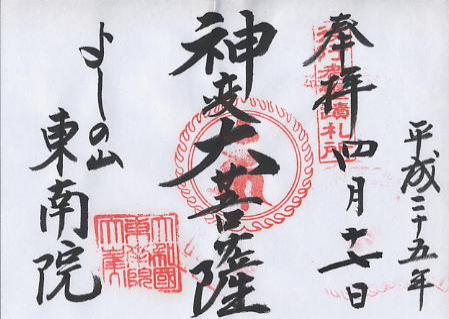 平成二十五年
奉拝 四月十七日
役行者霊蹟札所
神変大菩薩
よしの山
東南院